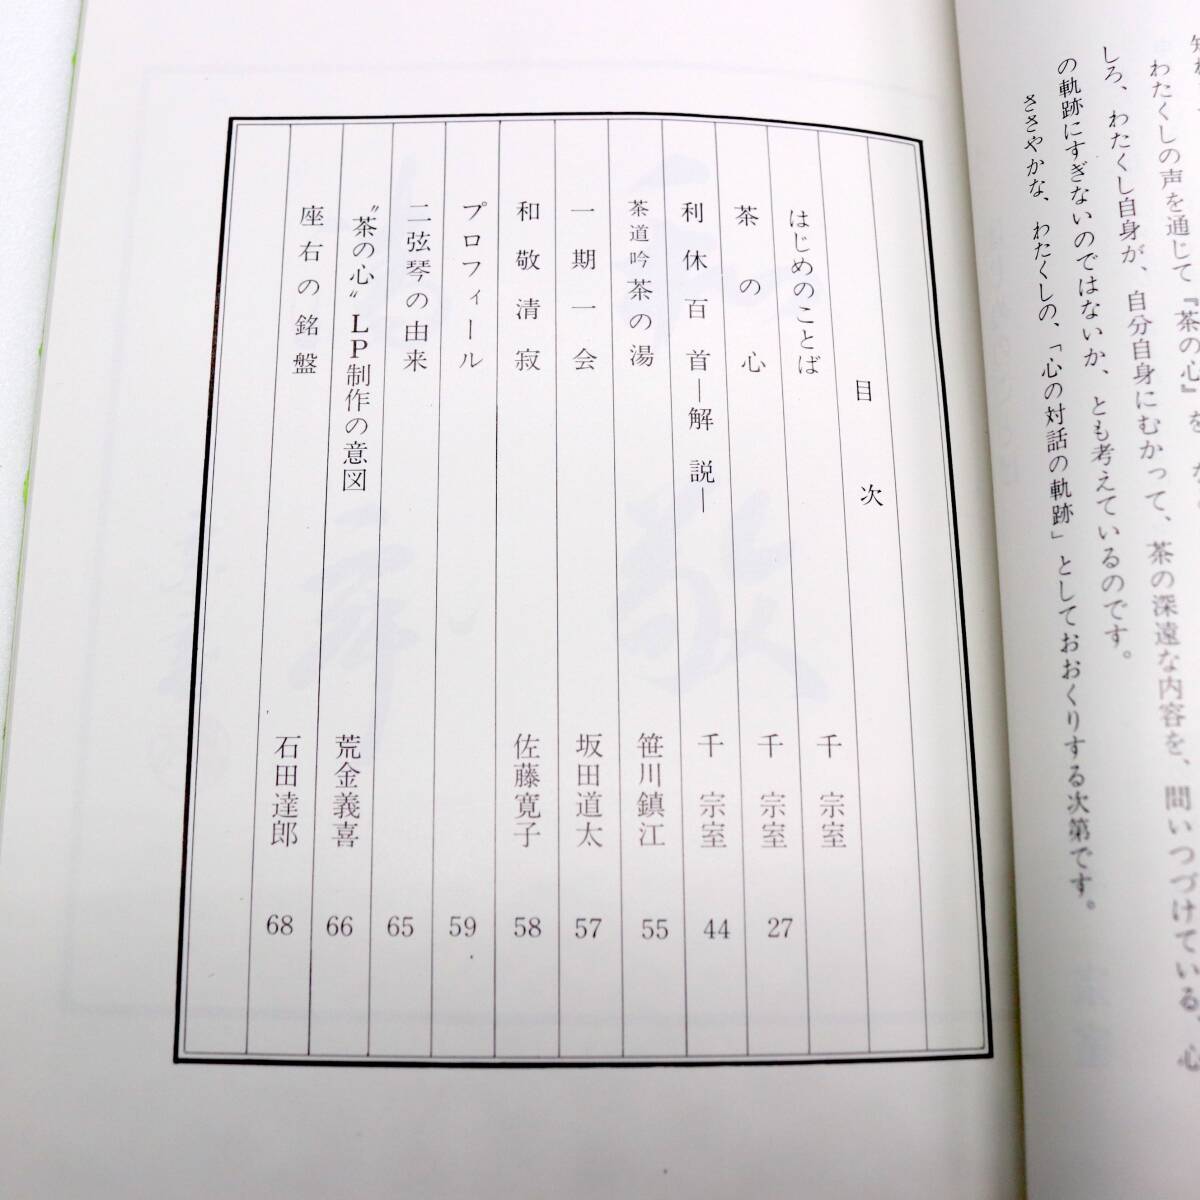 わたくしの声を通じて『茶の心』を
しろ、わたくし自身が、自分自身にむかって、茶の深遠な内容を、問いつづけている、心
の軌跡にすぎないのではないか、とも考えているのです。
ささやかな、わたくしの、「心の対話の軌跡」としておおくりする次第です。
目次
はじめのことば 千宗室
茶の心 千宗室 27
利休百首―解説― 千宗室 44
茶道吟 茶の湯 笹川鎮江 55
一期一会 坂田道太 57
和敬清寂 佐藤寛子 58
プロフィール 59
二弦琴の由来 65
〝茶の心〟LP制作の意図 荒金義喜 66
座右の銘盤 石田達郎 68